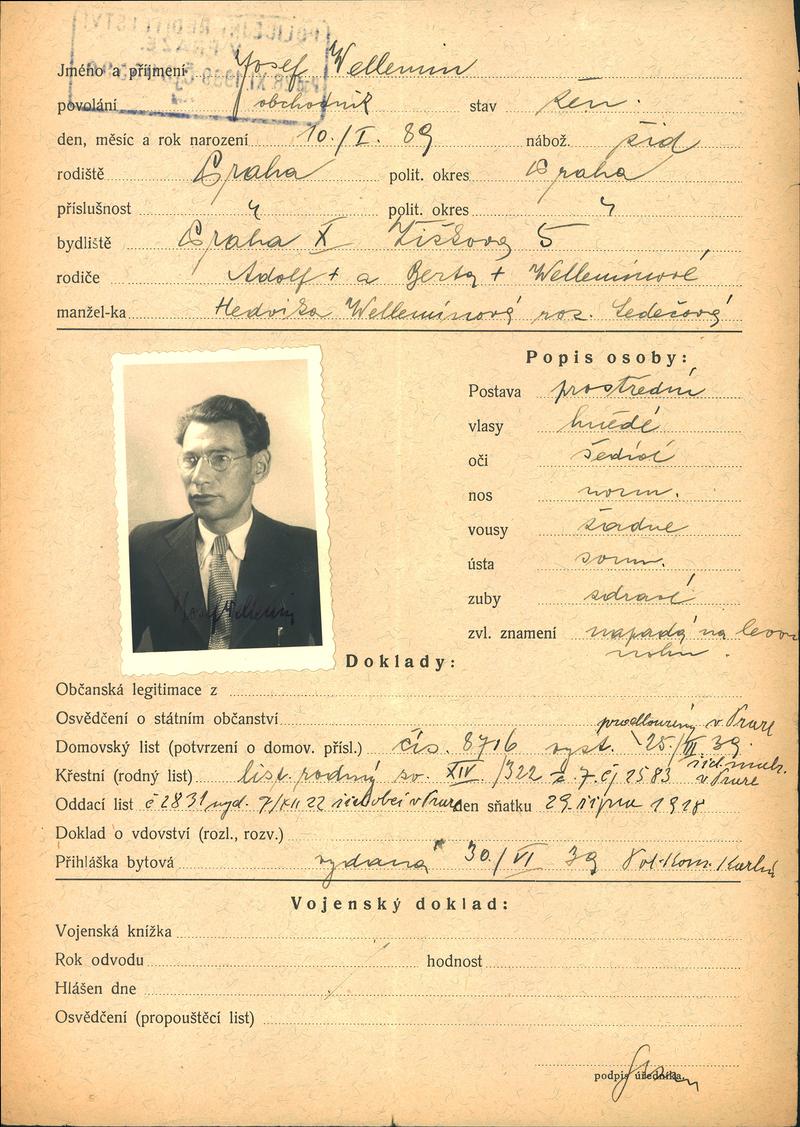 Jméno a příjmení Josef Wellemin
povolání obchodník stav žen.
den, měsíc a rok narození 10./I. 89 nábož. žid
rodiště Praha polit. okres Praha
příslušnost " polit. okres "
bydliště Praha X Žižkova 5
rodiče Adolf + a Berta + Welleminové
manžel-ka Hedvika Welleminová roz. Ledečová
Popis osoby:
Postava prostřední
vlasy hnědé
oči šedivé
nos norm.
vousy žádné
ústa norm.
zuby zdravé
zvl. znamení napadá na levou
nohu.
Josef Wellemin
Doklady:
Občanská legitimace z
Osvědčení o státním občanství
prodloužený v Praze
Domovský list (potvrzení o domov. přísl.) čís. 8716 vyst. 25/III 39.
Křestní (rodný list) list. rodný sv. XIV /322 z 7. čj 2583 v Praze
Oddací list č 2831 vyd. 7/XII 22 v Praze den sňatku 29 října 1918
Doklad o vdovství (rozl., rozv.)
Přihláška bytová vydaná 30./VI 39 Pol. Kom. Karlín
Vojenský doklad:
Vojenská knížka
Rok odvodu hodnost
Hlášen dne
Osvědčení (propouštěcí list)
podpis úředníka.